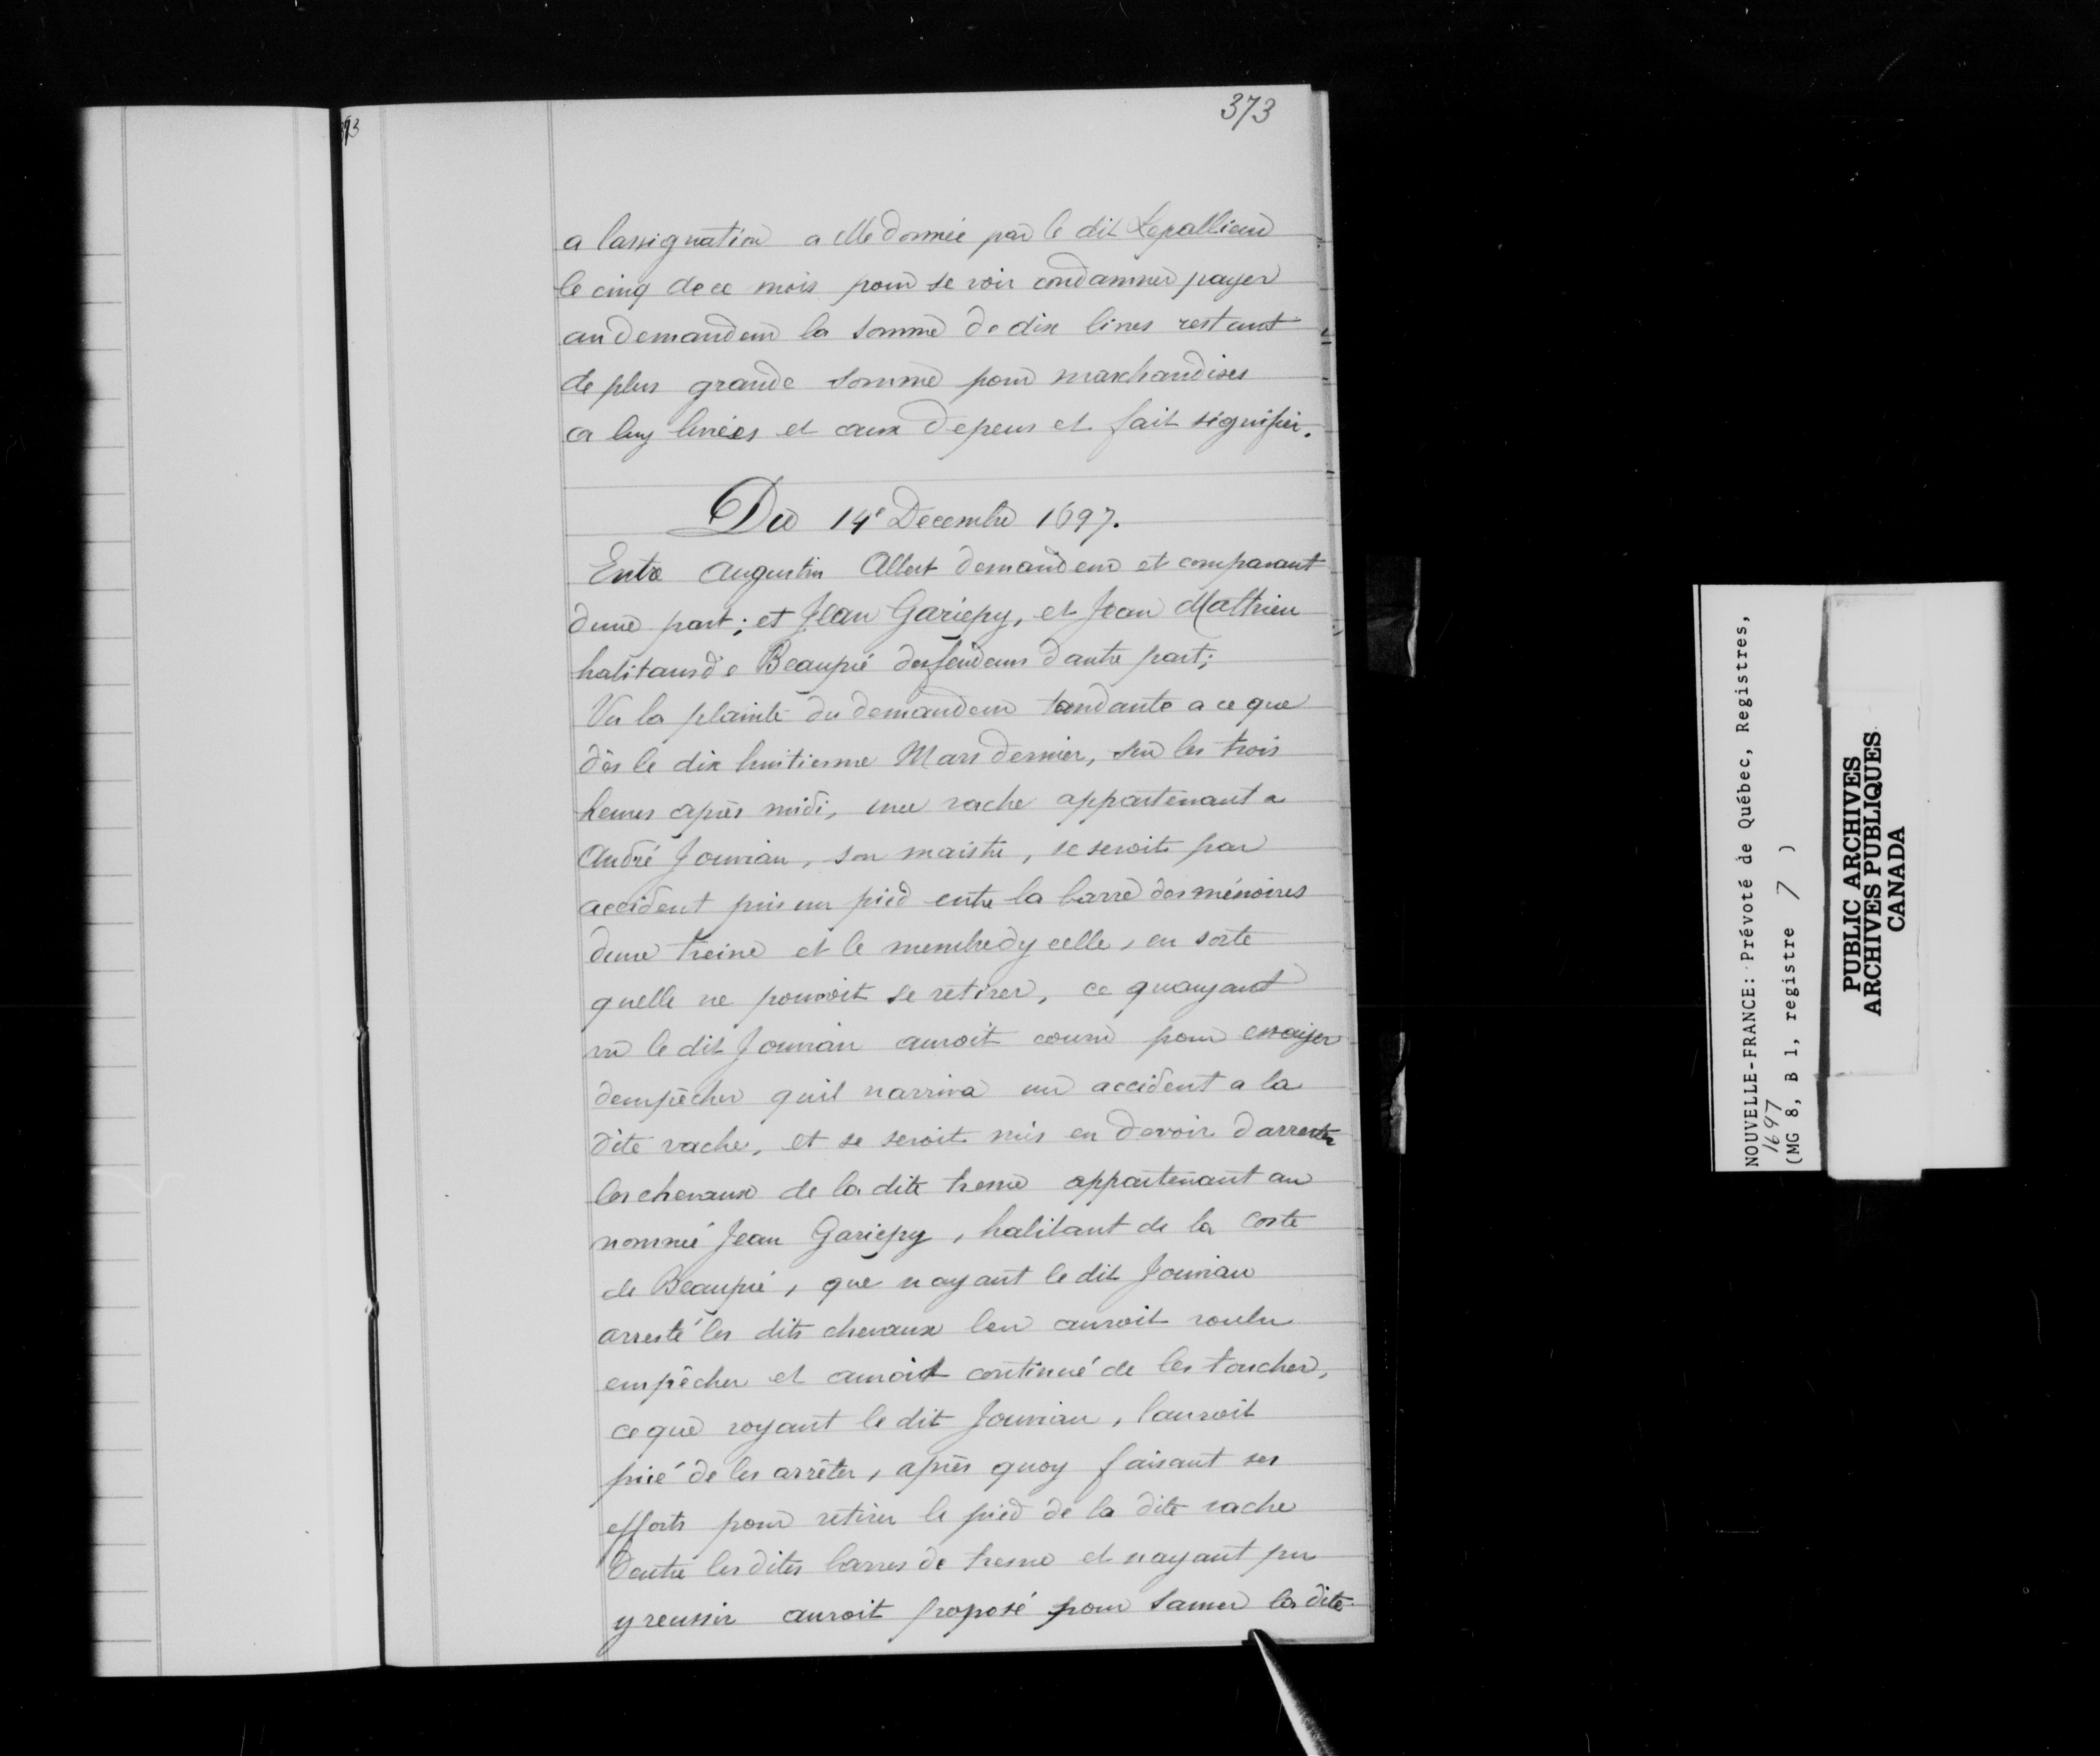 373
a lassignation a elle donnée par le dit Lepallieur
le cinq de ce mois pour se voir condamner payer
au demandeur la somme de dix livres restant
de plus grande somme pour marchandises
a luy livrées et aux depens et fait signifier.
Du 14e Decembre 1697.
Entre Augustin Albert demandeur et comparant
dune part; et Jean Gariepy, et Jean Mathieu
habitans de Beaupré defendeurs dautre part;
Vu la plainte du demandeur tandante a ce que
dès le dix huitiesme Mars dernier, sur les trois
heures après midi, une vache appartenant a
André Jouvian, son maistre, se seroit par
accident pris un pied entre la barre des ménoires
dune treine et le membre dycelle, en sorte
quelle ne pouvoit se retirer, ce quayant
vu le dit Jouvian auroit couru pour essaijer
dempêcher quil narriva un accident a la
dite vache, et se seroit mis en devoir darrester
les chevaux de la dite tresne appartenant au
nommé Jean Gariepy, habitant de la coste
de Beaupré, que nayant le dit Jouvian
arresté les dits chevaux leu auroit voulu
empêcher et auroit continué de les toucher,
ce que voyant le dit Jouvian, lauroit
prié de les arrêter, après quoy faisant ses
efforts pour retirer le pied de la dite vache
Dentre les dites barres de tresne et nayant pu
y reussir auroit proposé pour sauver la dite
373
NOUVELLE-FRANCE: Prévoté de Québec, Registres,
1697
(MG 8, B 1, registre 7 )
PUBLIC ARCHIVES
ARCHIVES PUBLIQUES
CANADA